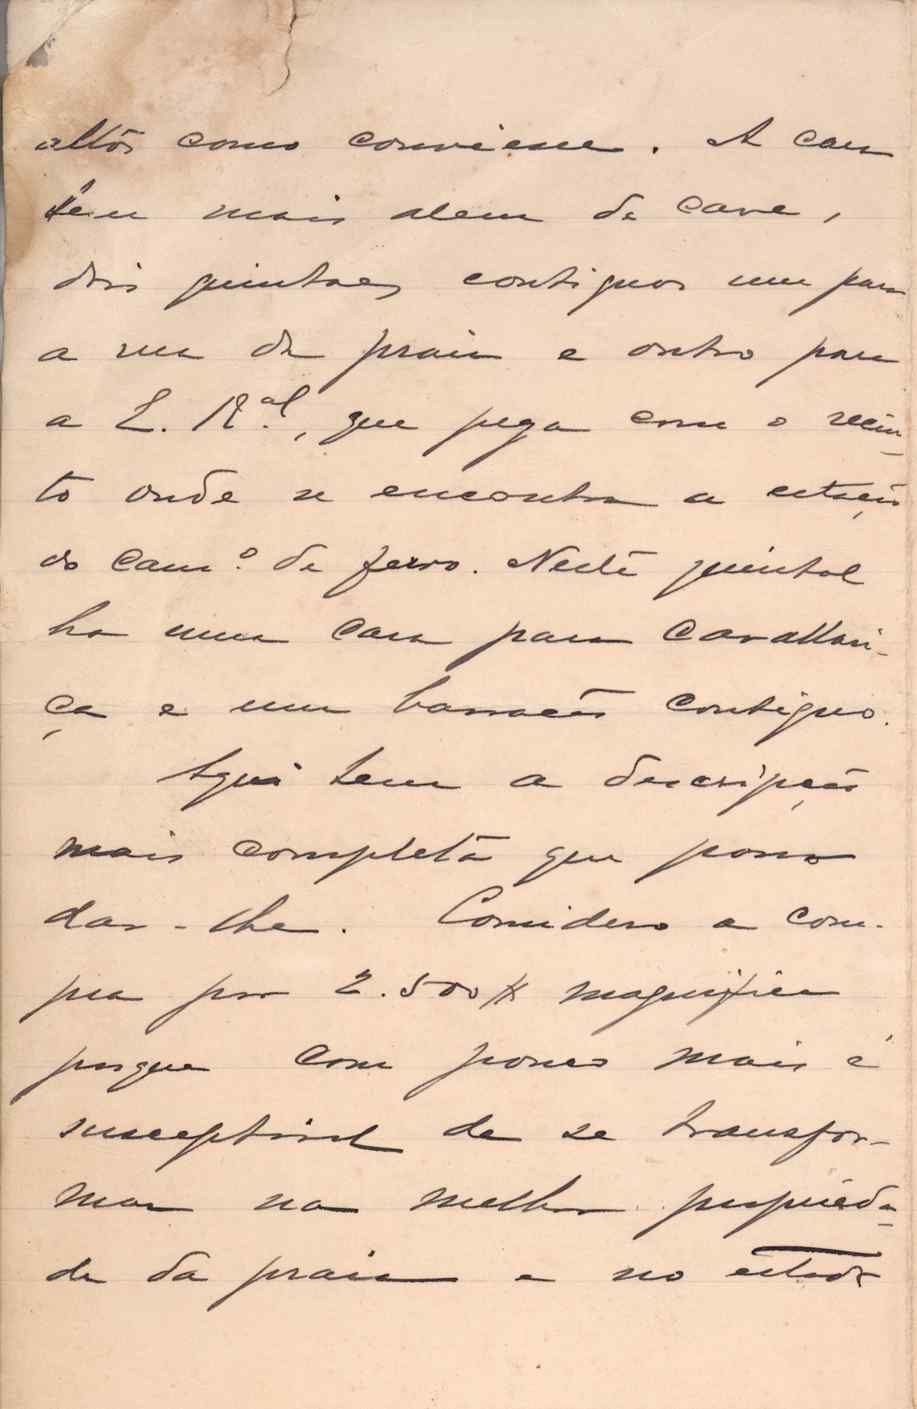 altos como conviesse. A casa
tem mais alem da cave,
dois quintaes contiguos um para
a rua da praia e outro para
a E. R.al, que pega com o recin-
to onde se encontra a estação
do cam.º de ferro. Neste quintal
ha uma casa para cavallari-
ça e um barracão contiguo.
Aqui tem a descripção
mais completa que posso
dar-lhe. Considero a com-
pra por 2.500$ magnifica
porque com pouco mais é
susceptivel de se transfor-
mar na melhor proprieda-
de da praia e no estado